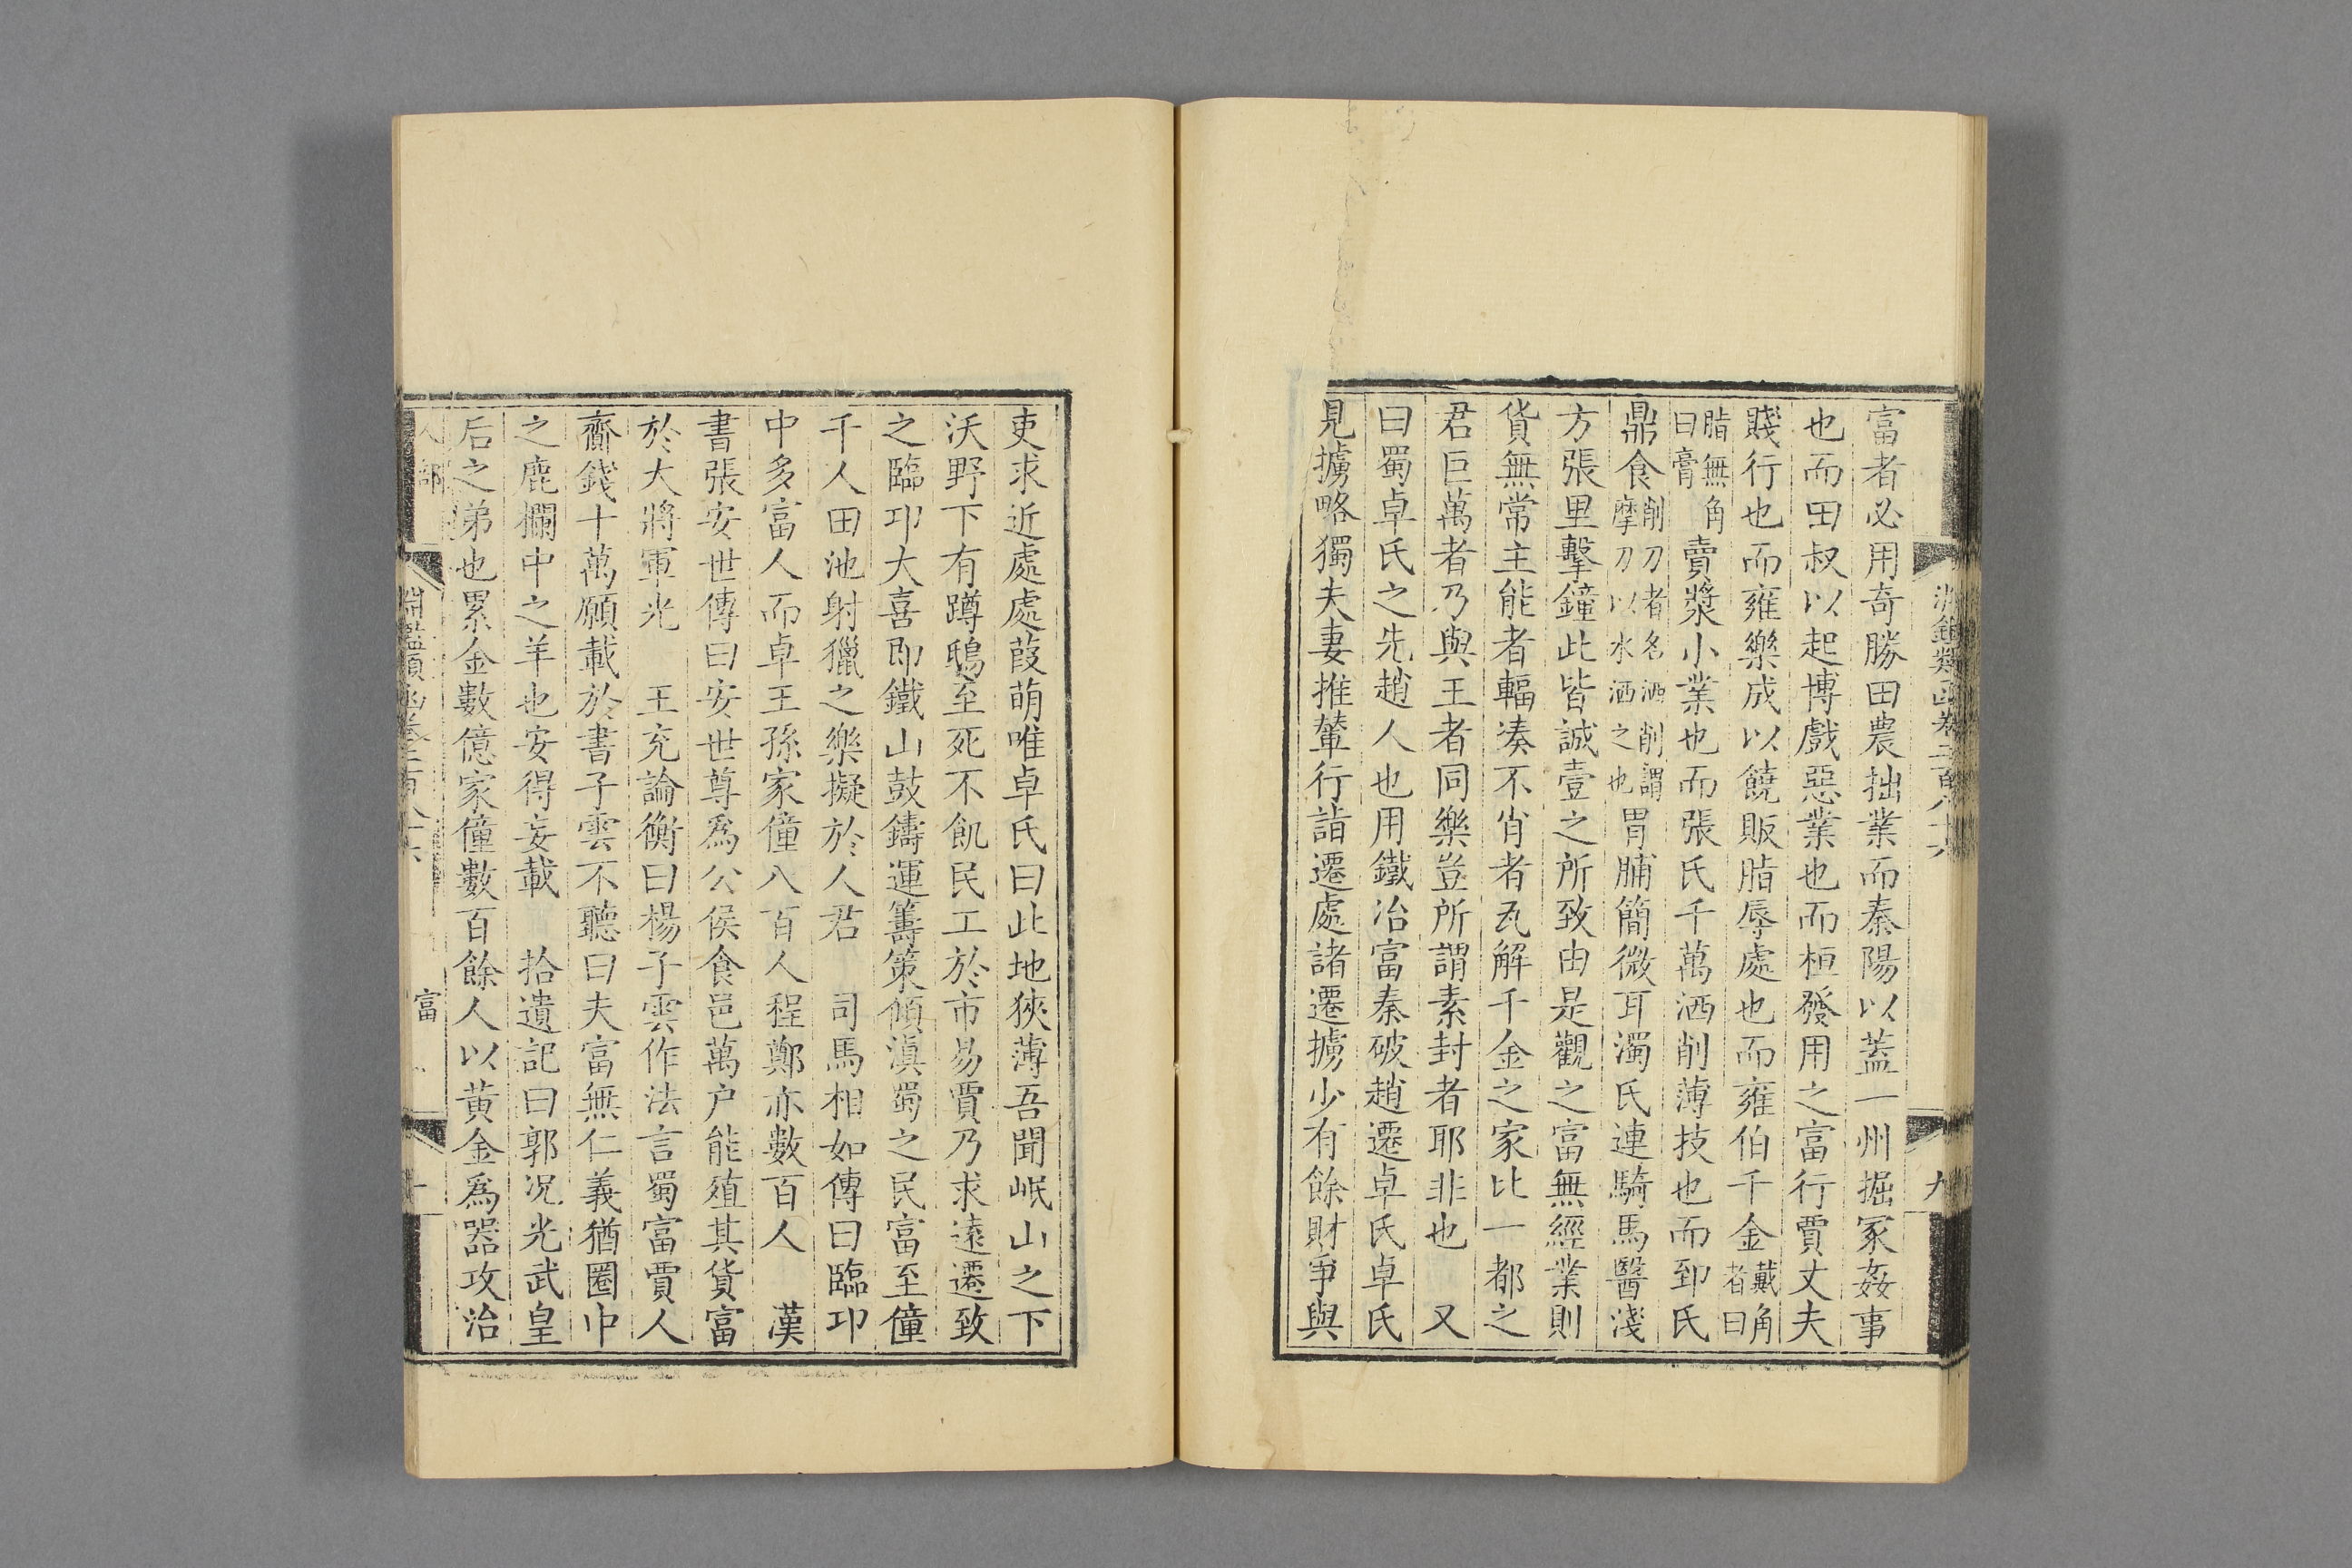 淵鑑類函卷三百八十六
九
富者必用奇勝田農拙業而秦陽以蓋一州掘冢姦事
也而田叔以起博戲惡業也而桓發用之富行賈丈夫
賤行也而雍樂成以饒販脂辱處也而雍伯千金戴角者曰
脂無角曰膏賣漿小業也而張氏千萬洒削薄技也而郅氏
鼎食削刀者名洒削謂摩刀以水洒之也胃脯簡微耳濁氏連騎馬醫淺
方張里擊鐘此皆誠壹之所致由是觀之富無經業則
貨無常主能者輻湊不肖者瓦解千金之家比一都之
君巨萬者乃與王者同樂豈所謂素封者耶非也　又
曰蜀卓氏之先趙人也用鐵冶富秦破趙遷卓氏卓氏
見擄略獨夫妻推輦行詣遷處諸遷擄少有餘財爭與
吏求近處處葭萌唯卓氏曰此地狹薄吾聞岷山之下
沃野下有蹲鴟至死不飢民工於市易賈乃求遠遷致
之臨卭大喜即鐵山鼓鑄運籌策傾滇蜀之民富至僮
千人田池射獵之樂擬於人君　司馬相如傳曰臨卭
中多富人而卓王孫家僮八百人程鄭亦數百人　漢
書張安世傳曰安世尊爲公侯食邑萬户能殖其貨富
於大將軍光　王充論衡曰楊子雲作法言蜀富賈人
齎錢十萬願載於書子雲不聽曰夫富無仁義猶圈中
之鹿欄中之羊也安得妄載　拾遺記曰郭况光武皇
后之弟也累金數億家僮數百餘人以黄金爲器攻冶
人部
淵鑑類函卷三百八十六
富
十